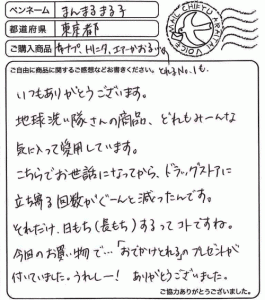 ペンネーム まんまるまる子
都道府県 東京都
ご購入商品
MAIL CHIKYU ARAITAI VOICE
ご自由に商品に関するご感想などお書きください。
とれるNo.1も。
いつもありがとうございます。
地球洗い隊さんの商品、どれもみーんな
気に入って愛用しています。
こちらでお世話になってから、ドラッグストアに
立ち寄る回数がぐーんと減ったんです。
それだけ、日もち(長もち)するってコトですね。
今回のお買い物で…「おでかけとれる」のプレゼントが
付いていました。うれしー! ありがとうございました。
ご協力ありがとうございました。